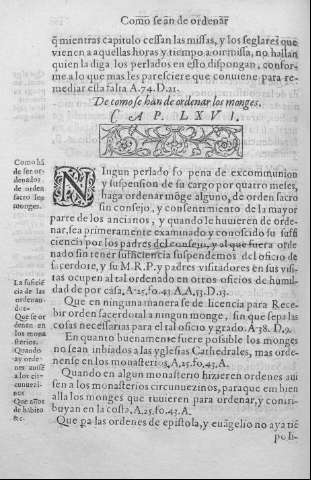 Como se an de ordenar
q̃ mientras capitulo cessan las missas, y los seglares que
vienen a aquellas horas y tiempo a oir missa, no hallan
quien la diga los perlados en esto dispongan, confor-
me a lo que mas les paresciere que conuiene para re-
mediar esta falta A.74.D.21.
De como se han de ordenar los monges.
CAP. LXVI.
Como hã
de ser or-
denados
de orden
sacro los
monges.
Ningun perlado so pena de excommunion
y suspension de su cargo por quatro meses,
haga ordenar mõge alguno, de orden sacro
sin consejo, y consentimiento de la mayor
parte de los ancianos, y quando le huuieren de orde-
nar, sea primeramente examinado y conoscido su suffi
ciencia por los padres del consejo, y al que fuera orde
nado sin tener sufficiencia suspendemos del oficio de
sacerdote, y su M.R.P. y padres visitadores en sus visi-
tas ocupen al tal ordenado en otros oficios de humil-
dad de por casa, A.25, fo.43. A.A.53. D.13.
La suficiẽ
cia de las
ordenan-
dos
Que en ninguna manera se de licencia para Rece-
bir orden sacerdotal a ningun monge, sin que sepa las
cosas necessarias para el tal oficio y grado. A.38. D.9.
Que se or
denẽ en
los mona
sterios.
En quanto buenamente fuere possible los monges
no sean inbiados a las yglesias Cathedrales, mas orde-
nense en los monasterios, A.25. fo. 43. A.
Quando
ay orde-
nes ausẽ
a los cir-
cunuezi-
nos
Quando en algun monasterio hizieren ordenes aui
sen a los monasterios circunuezinos, para que embien
alla los monges que tuuieren para ordenar, y contri-
buyan en la costa, A.25. fo. 43. A.
Que años
de habito
&c.
Que pa las ordenes de epistola, y euãgelio no aya tiẽ
po li-